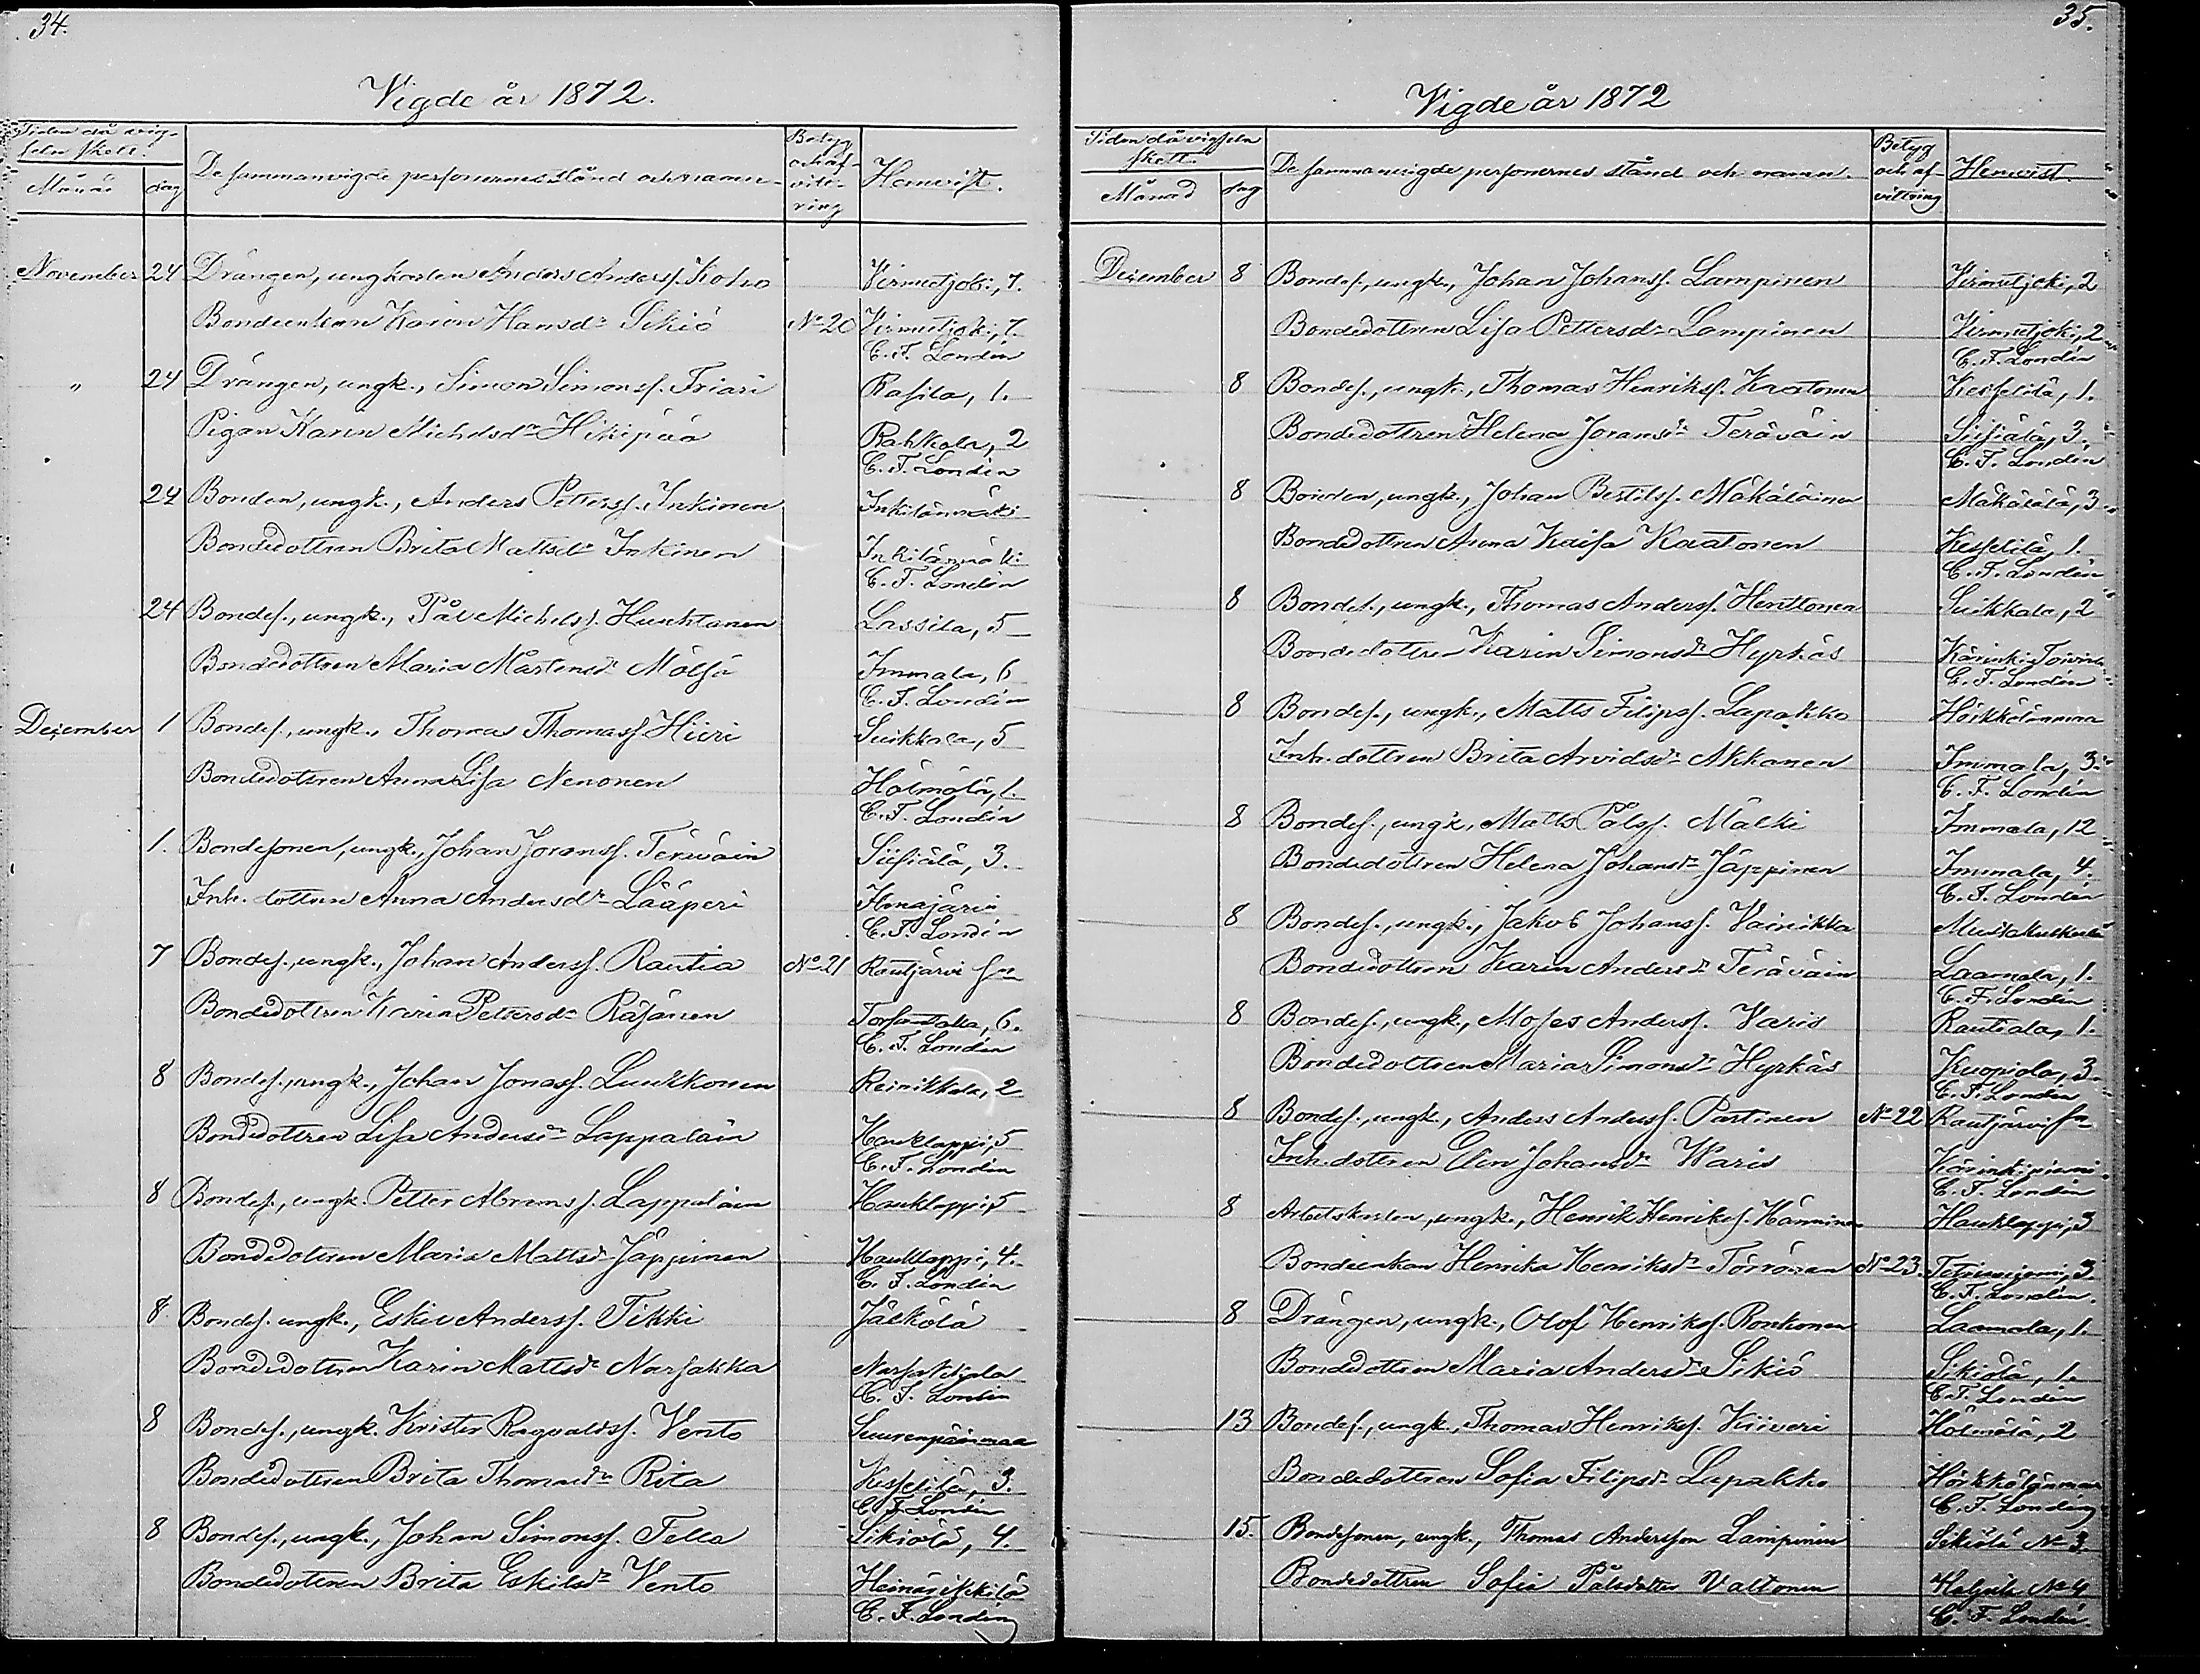 34.
Vigde år 1872.
Tiden då vig-
seln skett.
Månad
dag
De sammanvigde personernes stånd och namn.
Betyg
och af-
vitt-
ring
Hemvist.
November 24 Drängen, ungkarlen Anders Anderss. Koho Virmutjoki, 7.
Bondeenkan Karin Hansdr Sikiö No 20 Virmutjoki, 7.
C. F. Londén
" 24 Drängen, ungk., Simon Simonss. Friari Rasila, 1.
Pigan Karin Michelsdr Hikipää Rahkola, 2
C. F. Londén
24 Bonden, ungk., Anders Petterss. Inkinen Inkilänmäki
Bondedottren Brita Mattsdr Inkinen Inkilänmäki
C. F. Londén
24 Bondes., ungk., Pål Michelss. Huuhtanen Lassila, 5
Bondedottren Maria Mårtensdr Mölsä Immala, 6
C. F. Londén
December 1 Bondes., ungk., Thomas Thomass. Hiiri Suikkala, 5
Bondedottren Anna Lisa Nenonen Hälmälä, 1.
C. F. Londén
1. Bondesonen, ungk., Johan Joranss. Teräväin Siisiälä, 3.
Inh. dottren Anna Andersdr Lääperi Ilmajärvi
C. F. Londén
7 Bondes., ungk., Johan Anderss. Rautia No 21 Rautjärvi sn
Bondedottren Karin Pettersdr Räsänen Torsantaka, 6.
C. F. Londén
8 Bondes., ungk., Johan Jonass. Luukkonen Reinikkala, 2
Bondedottren Lisa Andersdr Lappalain Haukloppi, 5
C. F. Londén
8 Bondes., ungk. Petter Abramss. Lappalain Haukloppi, 5
Bondedottren Maria Mattsdr Jäppinen Haukloppi, 4.
C. F. Londén
8 Bondes. ungk., Eskil Anderss. Tikki Jälkölä
Bondedottren Karin Mattsdr Narsakka Narsakkala
C. F. Londén
8 Bondes., ungk. Krister Ragvaldss. Vento Suurenpäänmaa
Bondedottren Brita Thomasdr Rita Kesselilä, 3.
C. F. Londén
8 Bondes., ungk., Johan Simonss. Tella Sikiölä, 4.
Bondedottren Brita Eskilsdr Vento Heinäsikkilä
C. F. Londén
35.
Vigde år 1872
Tiden då vigseln
skett.
Månad
dag
De sammanvigde personernes stånd och namn.
Betyg
och af-
vittring
Hemvist
December 8 Bondes., ungk., Johan Johanss. Lampinen Virmutjoki, 2
Bondedottren Lisa Pettersdr Lampinen Virmutjoki, 2
C. F. Londén
8 Bondes., ungk., Thomas Henrikss. Kaatonen Kesselilä, 1.
Bondedottren Helena Joransdr Teräväin Siisiälä, 3.
C. F. Londén
8 Bonden, ungk., Johan Bertilss. Mäkäläinen Mäkälälä, 3
Bondedottren Anna Kaisa Kaatonen Kesselilä, 1.
C. F. Londén
8 Bondes., ungk., Thomas Anderss. Henttonen Suikkala, 2
Bondedottren Karin Simonsdr Hyrkäs Kärinki
C. F. Londén
8 Bondes., ungk., Matts Filipss. Lapakko Härkkölänmaa
Inh. dottren Brita Arvidsdr Akkanen Immala, 3.
C. F. Londén
8 Bondes., ungk., Matts Pålss. Mälki Immala, 12
Bondedottren Helena Johansdr Jäppinen Immala, 4.
C. F. Londén
8 Bondes., ungk., Jakob Johanss. Vainikka
Bondedottren Karin Andersdr Teräväin Laamala, 1.
C. F. Londén
8 Bondes., ungk., Moses Anderss. Varis Rautiala, 1.
Bondedottren Maria Simonsdr Hyrkäs Kuopiola, 3
C. F. Londén
8 Bondes., ungk., Anders Anderss. Partinen No 22 Rautjärvi sn
Inh. dottren Elin Johansdr Waris Kärinkiniemi
C. F. Londén
8 Arbetskarlen, ungk., Henrik Henrikss. Känninen Haukloppi, 3
Bondeenkan Henrika Henriksdr Törrönen No 23. 3
C. F. Londén.
8 Drängen, ungk., Olof Henrikss. Ronkonen Laamala, 1.
Bondedottren Maria Andersdr Sikiö Sikiölä, 1.
C. F. Londén
13 Bondes., ungk., Thomas Henrikss. Kiiveri Hälmälä, 2
Bondedottren Sofia Filipsdr Lapakko Härkkölänmaa
C. F. Londén
15. Bondesonen, ungk., Thomas Andersson Lampinen Sikiölä No 3.
Bondedottren Sofia Pålsdotter Valtonen No 4
C. F. Londén.